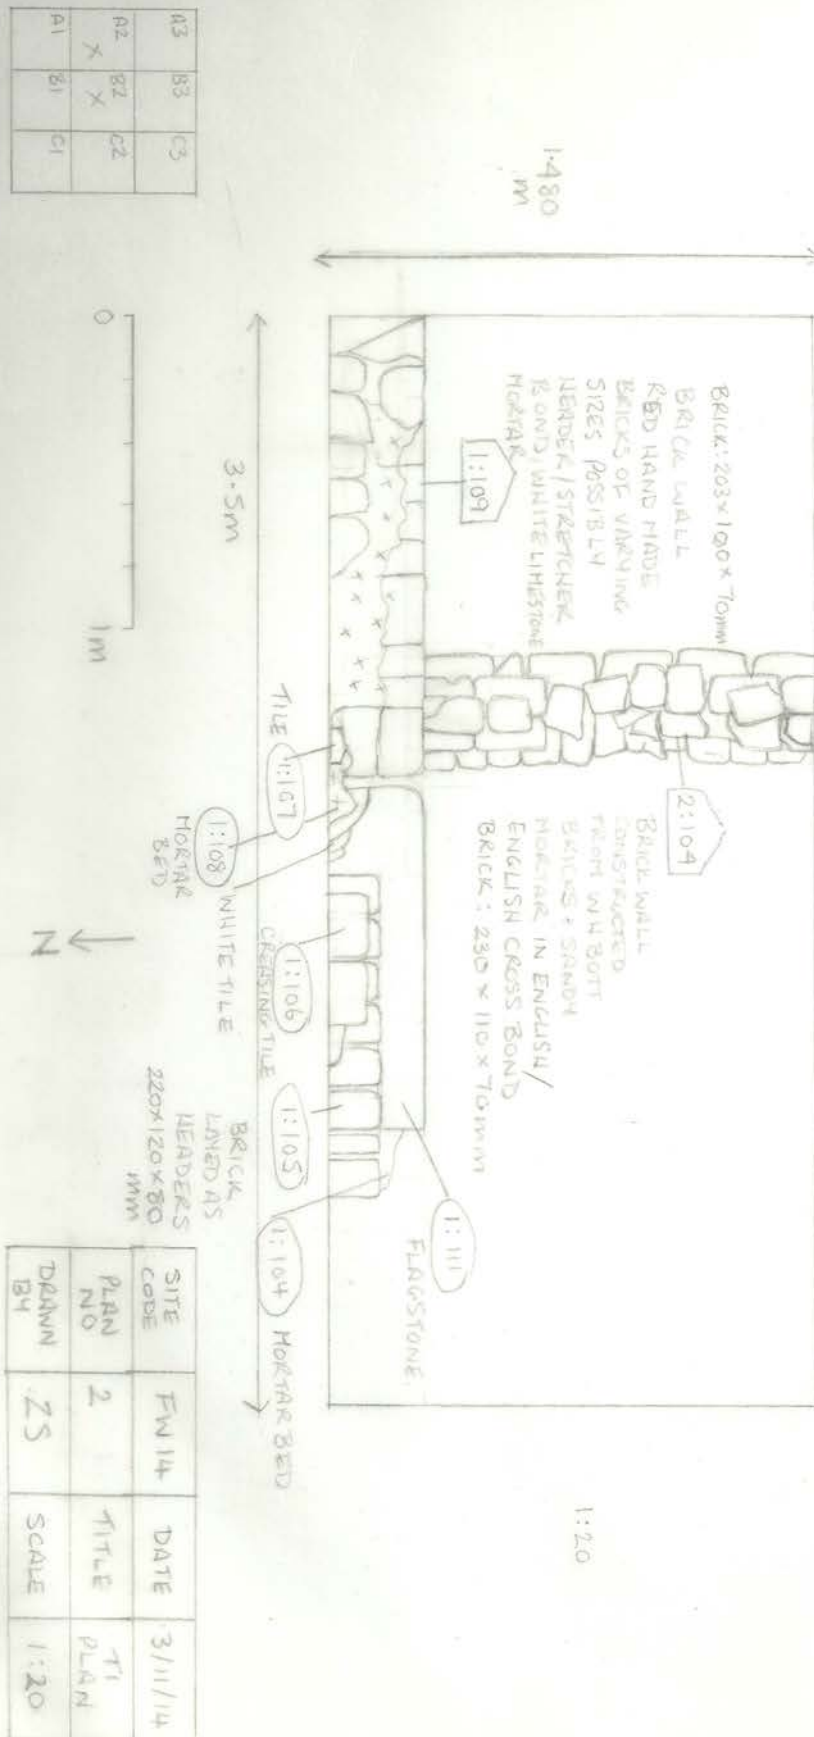 A3 B3 C3
A2 B2 C2
X X
A1 B1 C1
1.480
m
BRICK: 203 x 100 x 70mm
BRICK WALL
RED HAND MADE
BRICKS OF VARYING
SIZES POSSIBLY
HEADER / STRETCHER
BOND, WHITE LIMESTONE
MORTAR
1:109
2:104
BRICK WALL
CONSTRUCTED
FROM WH BOTT
BRICKS + SANDY
MORTAR IN ENGLISH /
ENGLISH CROSS BOND
BRICK: 230 x 110 x 70mm
1:20
3.5m
0 1m
TILE 1:107
1:108
MORTAR
BED
WHITE TILE
1:106
CREASING TILE
1:105
BRICK
LAYED AS
HEADERS
220X120X80
mm
1:111
FLAGSTONE
1:104 MORTAR BED
N
SITE
CODE FW14 DATE 3/11/14
PLAN
NO 2 TITLE T1
PLAN
DRAWN
BY ZS SCALE 1:20